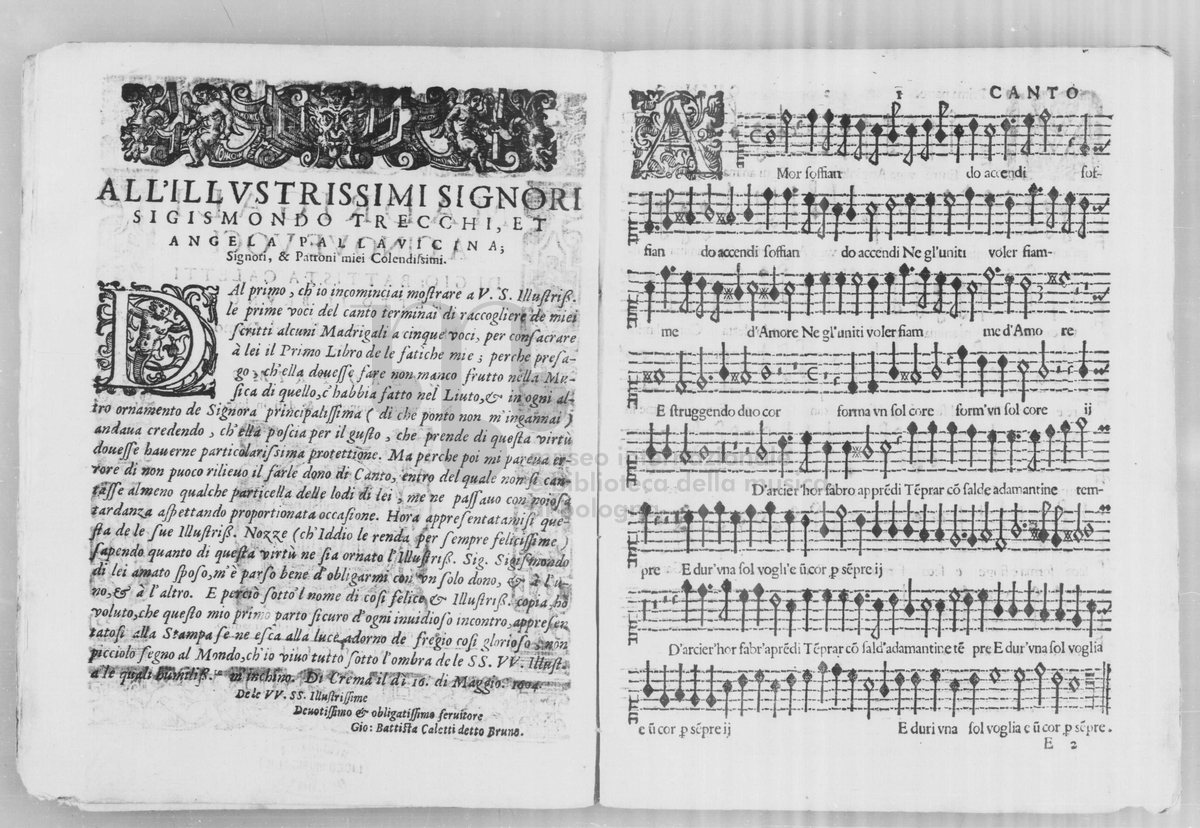 ALL'ILLVSTRISSIMI SIGNORI
SIGISMONDO TRECCHI, ET
ANGELA PALLAVICINA;
Signori, & Patroni miei Colendissimi.
DAl primo, ch'io incominciai mostrare a V. S. Illustriß.
le prime voci del canto terminai di raccogliere de miei
scritti alcuni Madrigali a cinque voci, per consacrare
à lei il Primo Libro de le fatiche mie; perche presa-
go, ch'ella douesse fare non manco frutto nella Mu-
sica di quello, c'habbia fatto nel Liuto, & in ogni al-
tro ornamento de Signora principalissima ( di che ponto non m'ingannai )
andaua credendo, ch'ella poscia per il gusto, che prende di questa virtù
douesse hauerne particolarissima protettione. Ma perche poi mi pareua er-
rore di non puoco rilieuo il farle dono di Canto, entro del quale non si can-
tasse almeno qualche particella delle lodi di lei, me ne passauo con noiosa
tardanza aspettando proportionata occasione. Hora appresentatamisi que-
sta de le sue Illustriß. Nozze (ch'Iddio le renda per sempre felicissime)
sapendo quanto di questa virtù ne sia ornato l'Illustriß. Sig. Sigismondo
di lei amato sposo, m'è parso bene d'obligarmi con vn solo dono, & à l'u-
no, & à l'altro. E perciò sotto'l nome di cosi felice & Illustriß. copia, hò
voluto, che questo mio primo parto sicuro d'ogni inuidioso incontro, appresen-
tatosi alla Stampa se ne esca alla luce adorno de fregio cosi glorioso; non
picciolo segno al Mondo, ch'io viuo tutto sotto l'ombra dele SS. VV. Illust.
a le quali humiliß. m'inchino. Di Crema il dì 10. di Maggio. 1604.
Dele VV. SS. Illustrissime
Deuotissimo & obligatissimo seruitore
Gio: Battista Caletti detto Bruno.
1 CANTO
AMor soffian do accendi sof-
fian do accendi soffian do accendi Ne gl'uniti voler fiam-
me d'Amore Ne gl'uniti voler fiam me d'Amo re
E struggendo duo cor forma vn sol core form'vn sol core ij
D'arcier'hor fabro apprēdi Tēprar cō salde adamantine tem-
pre E dur'vna sol vogli'e ū cor ꝑ sēpre ij
D'arcier'hor fabr'aprēdi Tēprar cō sald'adamantine tē pre E dur'vna sol voglia
e ū cor ꝑ sēpre ij E duri vna sol voglia e ū cor ꝑ sēpre.
E 2
museo internazionale
e biblioteca della musica
di bologna